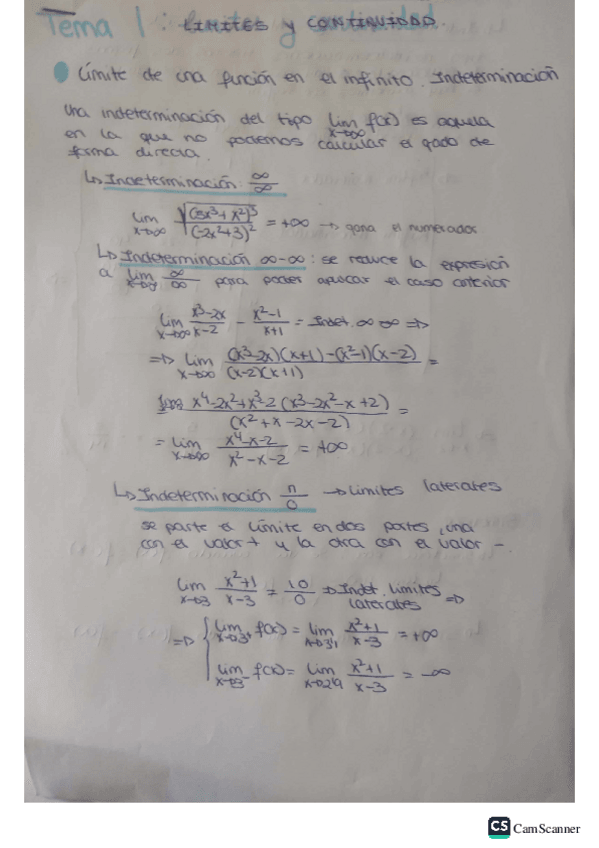 Tema 1: LIMITES y CONTINUIDAD.
Límite de una función en el infinito. Indeterminación
Una indeterminación del tipo lim x→∞ f(x) es aquella
en la que no podemos calcular el grado de
forma directa.
↳ Indeterminación ∞/∞
lim x→∞ √(5x³+x²)³ / (-2x²+3)² = +∞ → gana el numerador
↳ Indeterminación ∞-∞: se reduce la expresión
a lim ∞/∞ para poder aplicar el caso anterior
lim x→∞ x³-2x/x-2 - x²-1/x+1 = Indet. ∞-∞ ⇒
⇒ lim x→∞ (x³-2x)(x+1)-(x²-1)(x-2) / (x-2)(x+1) =
x⁴-2x²+x³-2 (x³-2x²-x+2) / (x²+x-2x-2) =
= lim x→∞ x⁴-x-2 / x²-x-2 = +∞
↳ Indeterminación n/0 → Limites laterales
se parte el límite en dos partes, una
con el valor + y la otra con el valor -.
lim x→3 x²+1 / x-3 = 10/0 → Indet. Limites
laterales ⇒
⇒ { lim x→3⁺ f(x) = lim x→3'1 x²+1 / x-3 = +∞
lim x→3⁻ f(x) = lim x→2'9 x²+1 / x-3 = -∞
CS CamScanner